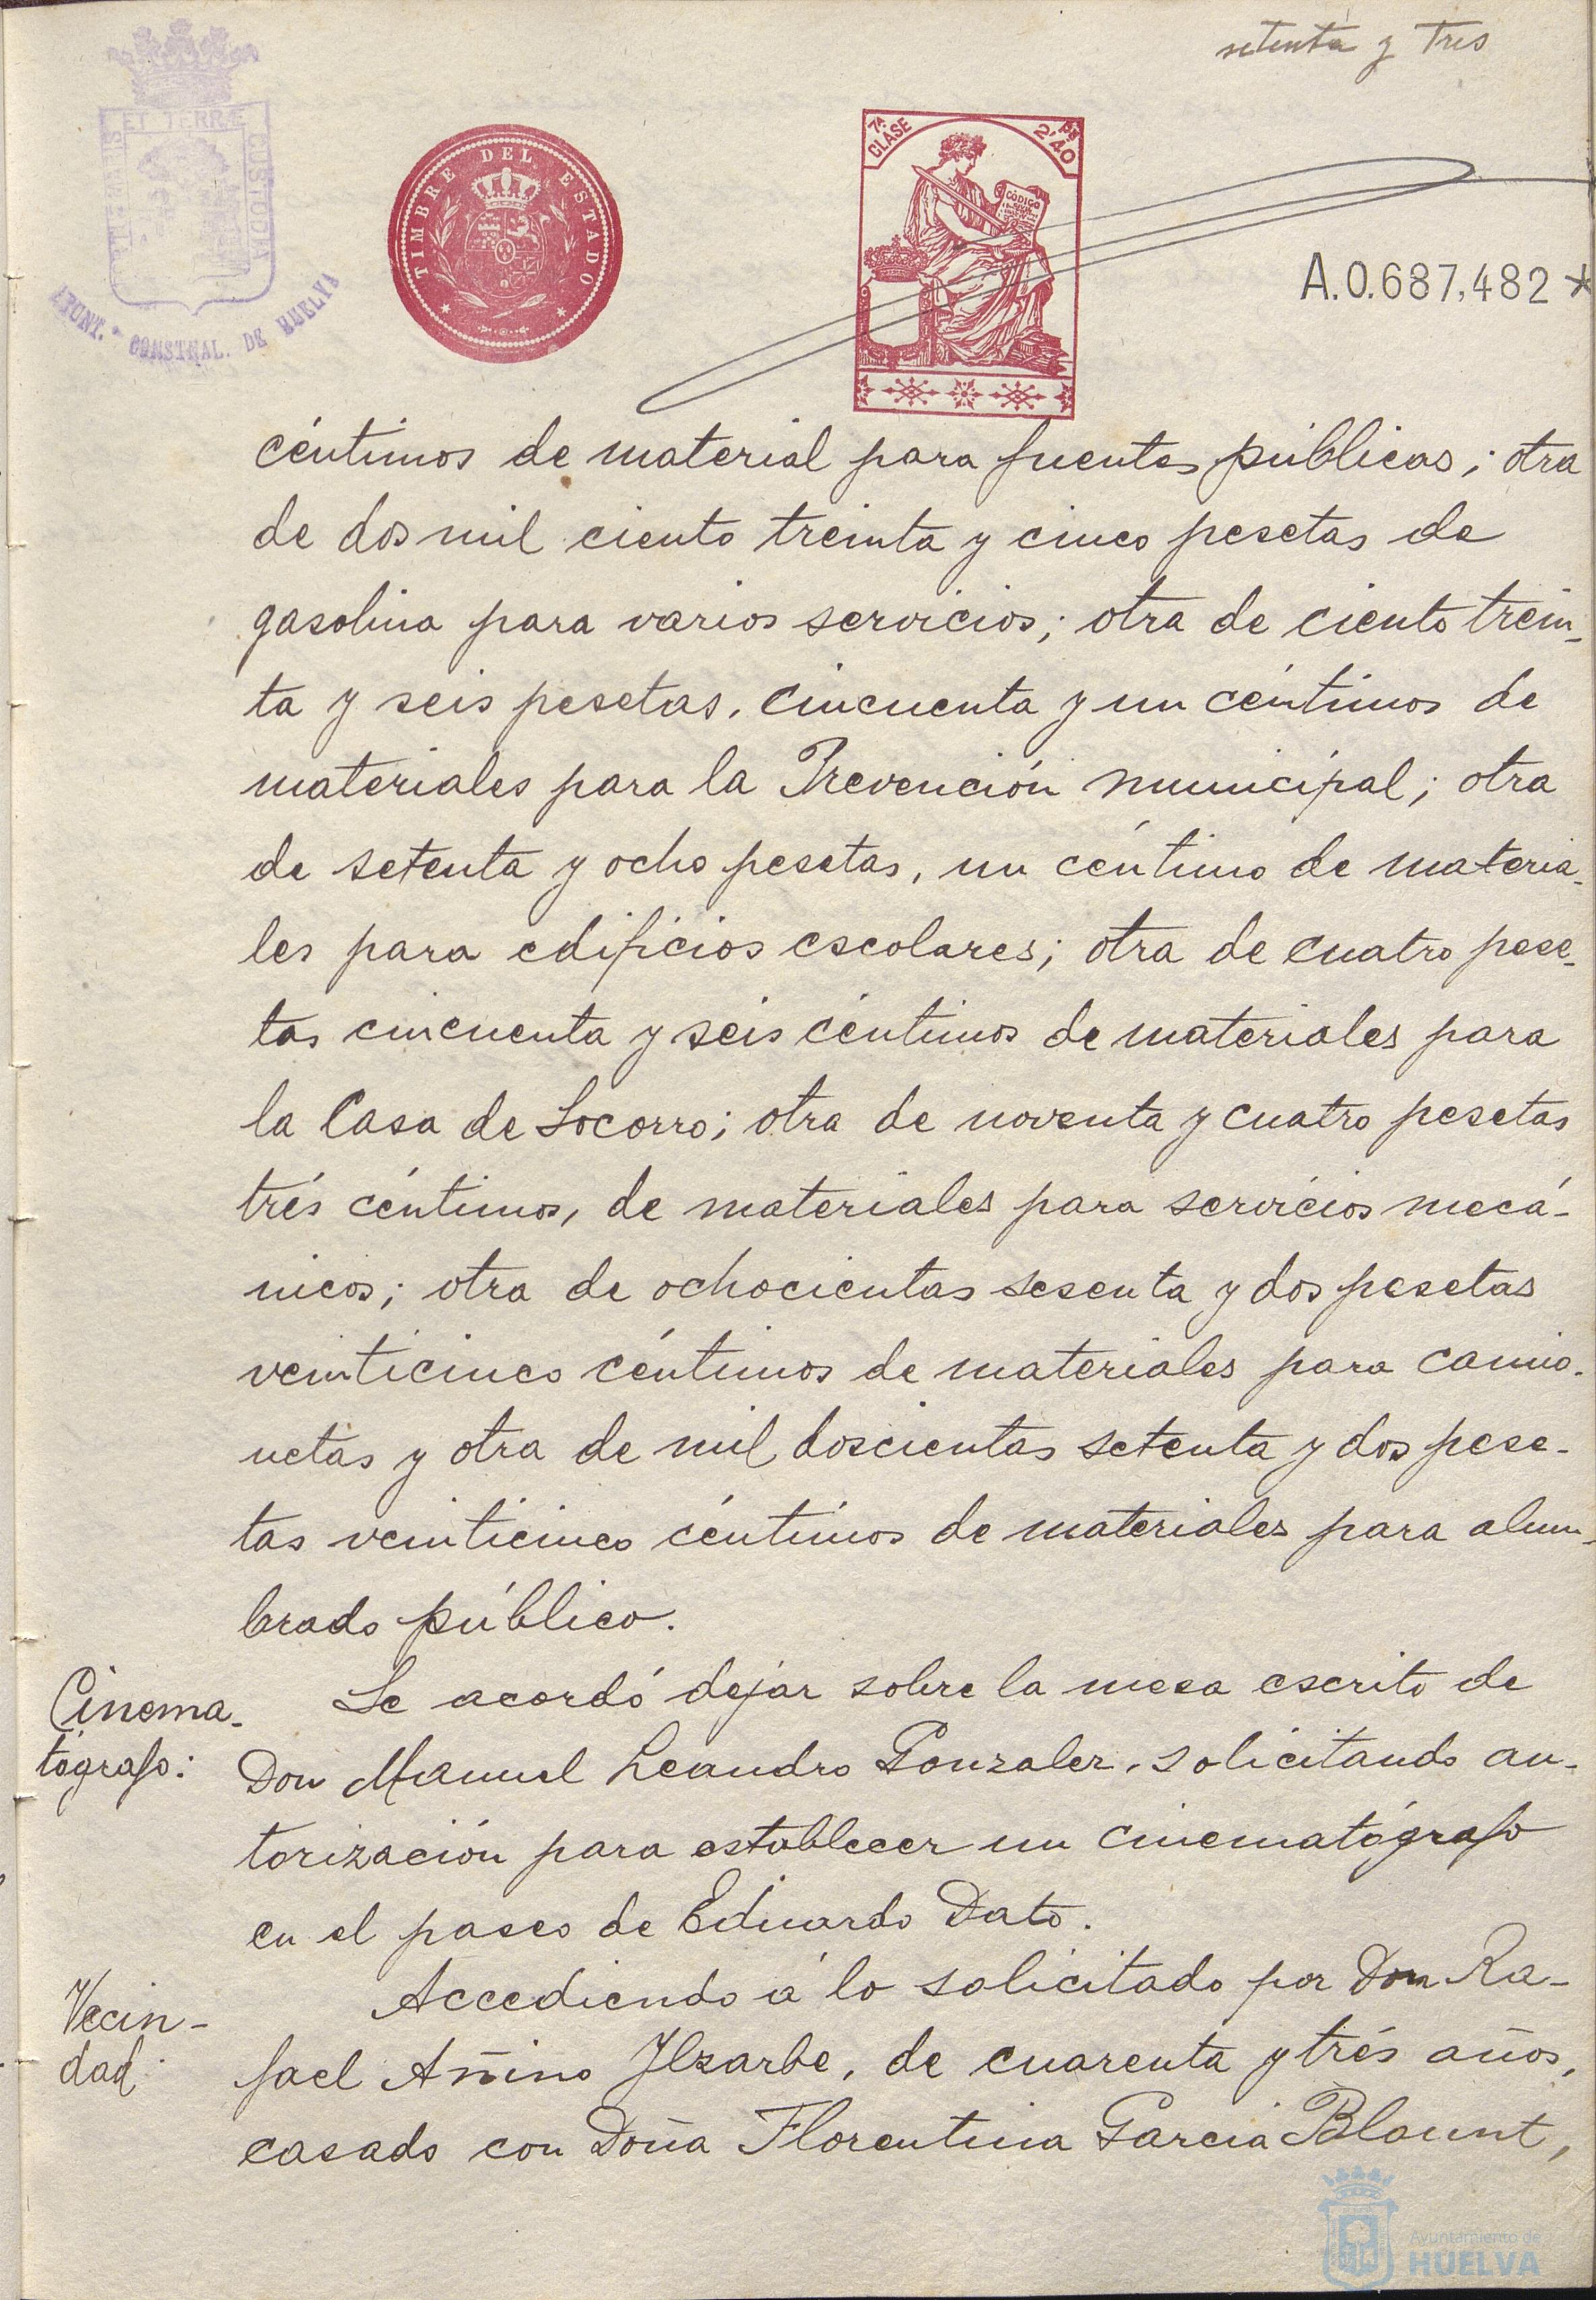 setenta y tres
ET TERRÆ
CUSTODIA
AYUNT. CONSTNAL. DE HUELVA
TIMBRE DEL ESTADO
7ª CLASE
2,40
CÓDIGO
A.0.687,482*
céntimos de material para fuentes públicas; otra
de dos mil ciento treinta y cinco pesetas de
gasolina para varios servicios; otra de ciento trein-
ta y seis pesetas, cincuenta y un céntimos de
materiales para la Prevención municipal; otra
de setenta y ocho pesetas, un céntimo de materia-
les para edificios escolares; otra de cuatro pese-
tas cincuenta y seis céntimos de materiales para
la Casa de Socorro; otra de noventa y cuatro pesetas
trés céntimos, de materiales para servicios mecá-
nicos; otra de ochocientas sesenta y dos pesetas
veinticinco céntimos de materiales para camio-
netas y otra de mil doscientas setenta y dos pese-
tas veinticinco céntimos de materiales para alum-
brado público.
Cinema-
tógrafo:
Se acordó dejar sobre la mesa escrito de
Don Manuel Leandro Gonzalez, solicitando au-
torización para establecer un cinematógrafo
en el paseo de Eduardo Dato.
Vecin-
dad.
Accediendo á lo solicitado por Don Ra-
fael Añino Ilzarbe, de cuarenta y trés años,
casado con Doña Florentina Garcia Blount,
Ayuntamiento de
HUELVA